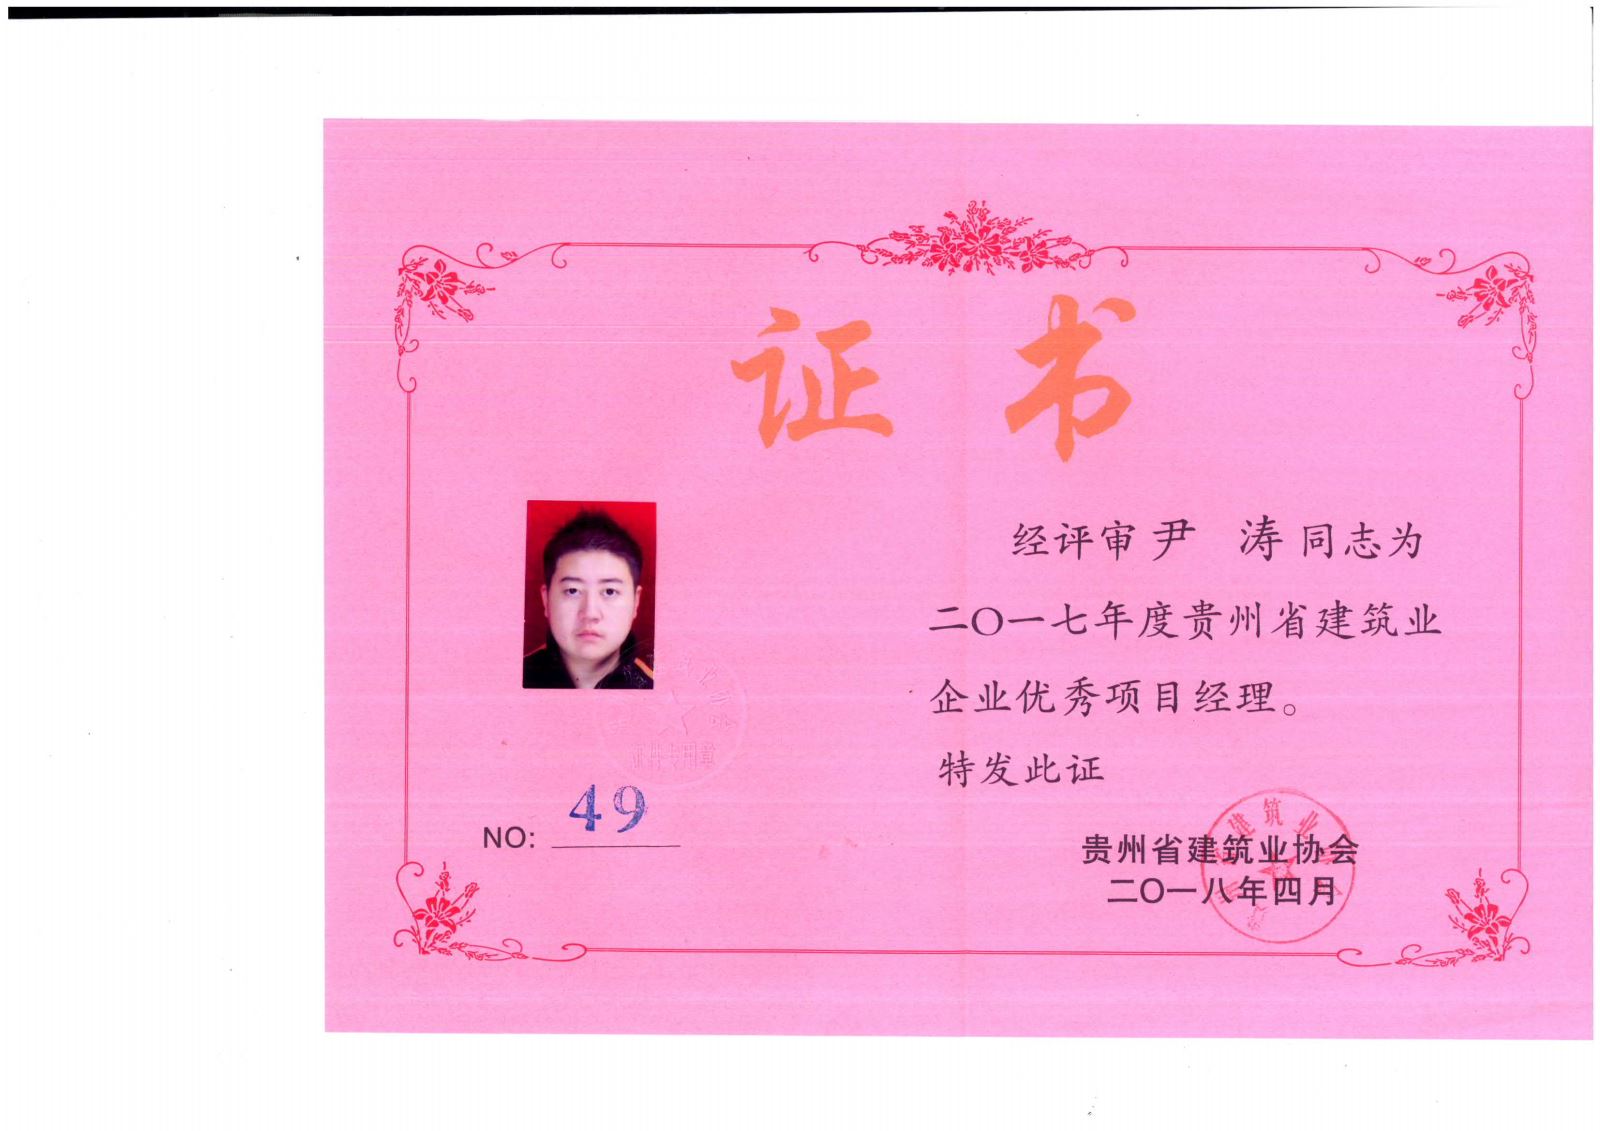 证 书
经评审 尹 涛 同志为
二〇一七年度贵州省建筑业
企业优秀项目经理。
特发此证
NO: 49
贵州省建筑业协会
二〇一八年四月
建筑业
证件专用章